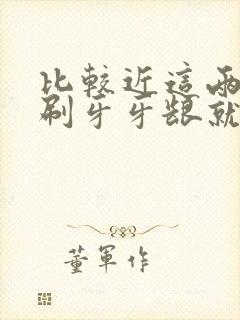 比較近這兩
刷牙牙齦就
董軍作